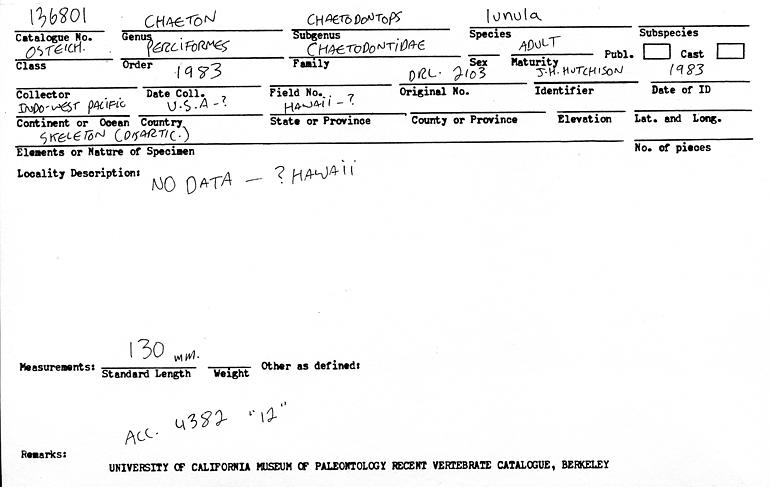 136801 CHAETON CHAETODONTOPS lunula
Catalogue No. Genus Subgenus Species Subspecies
OSTEICH. PERCIFORMES CHAETODONTIDAE ADULT Publ. Cast
Class Order Family Sex Maturity
1983 DRL. 2103 J.H. HUTCHISON 1983
Collector Date Coll. Field No. Original No. Identifier Date of ID
INDO-WEST PACIFIC U.S.A-? HAWAII-?
Continent or Ocean Country State or Province County or Province Elevation Lat. and Long.
SKELETON (DISARTIC.)
Elements or Nature of Specimen No. of pieces
Locality Description: NO DATA — ? HAWAII
130 mm.
Measurements: Standard Length Weight Other as defined:
ACC. 4382 "12"
Remarks:
UNIVERSITY OF CALIFORNIA MUSEUM OF PALEONTOLOGY RECENT VERTEBRATE CATALOGUE, BERKELEY